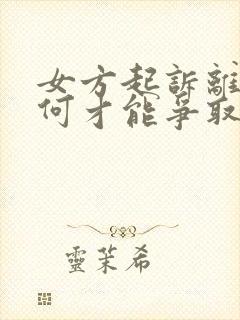 女方起訴離
何才能爭取
靈茉希